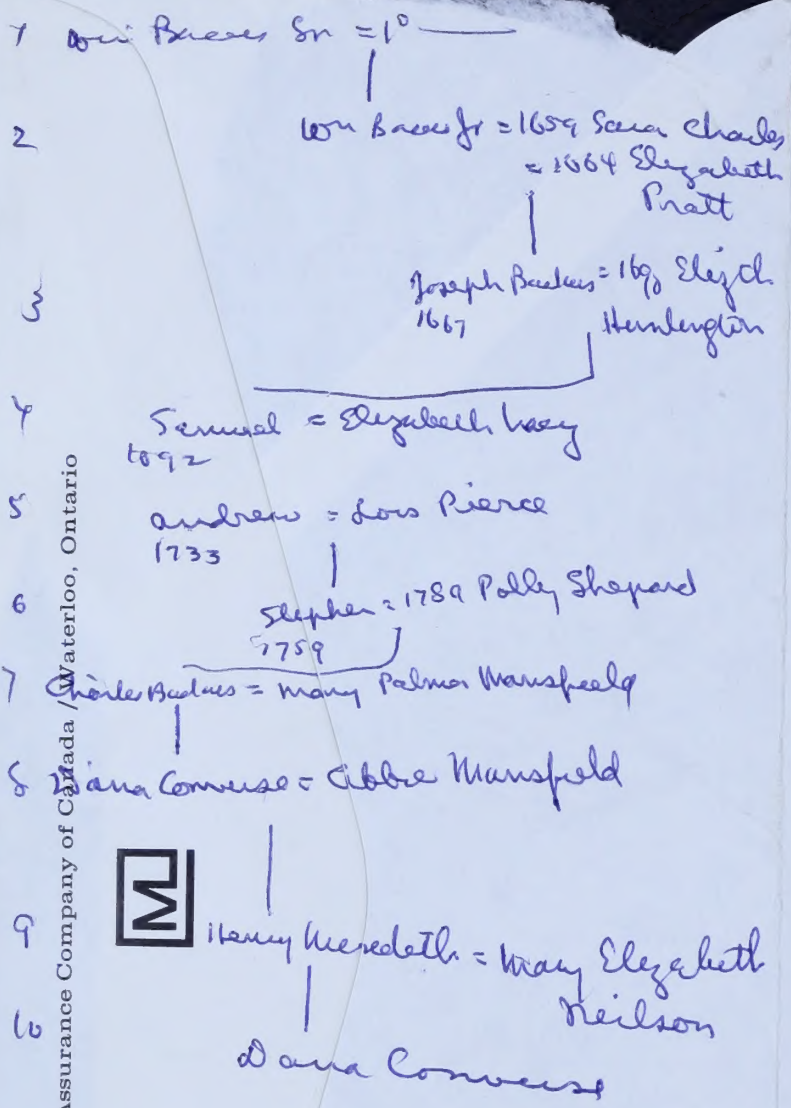 1 Wm Bacus Sr = 1°
2 Wm Bacus Jr = 1659 Sara Charles
= 1664 Elizabeth
Pratt
3 Joseph Backus = 169 Elizth
1667 Huntington
4 Samuel = Elizabeth
1692
5 Andrew = Lois Pierce
1733
6 Stephen = 1789 Polly Shepard
1759
7 Charles Backus = Mary Palmer Mansfield
8 Dana Converse = Abbie Mansfield
9 Henry Meredeth = Mary Elizabeth
Neilson
10 Dana Converse
Assurance Company of Canada / Waterloo, Ontario
M